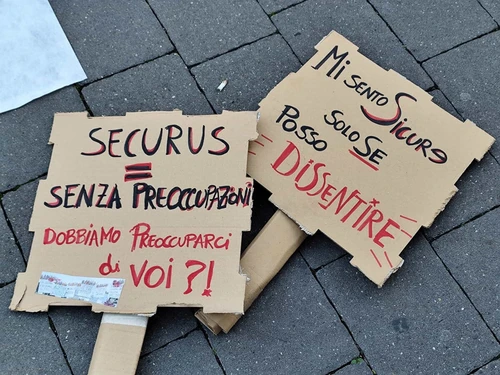 SECURUS
=
SENZA PREOCCUPAZIONI
DOBBIAMO PREOCCUPARCI
di VOI?!
Mi SENTO SicurƏ
SOLO SE
POSSO
DISSENTIRE